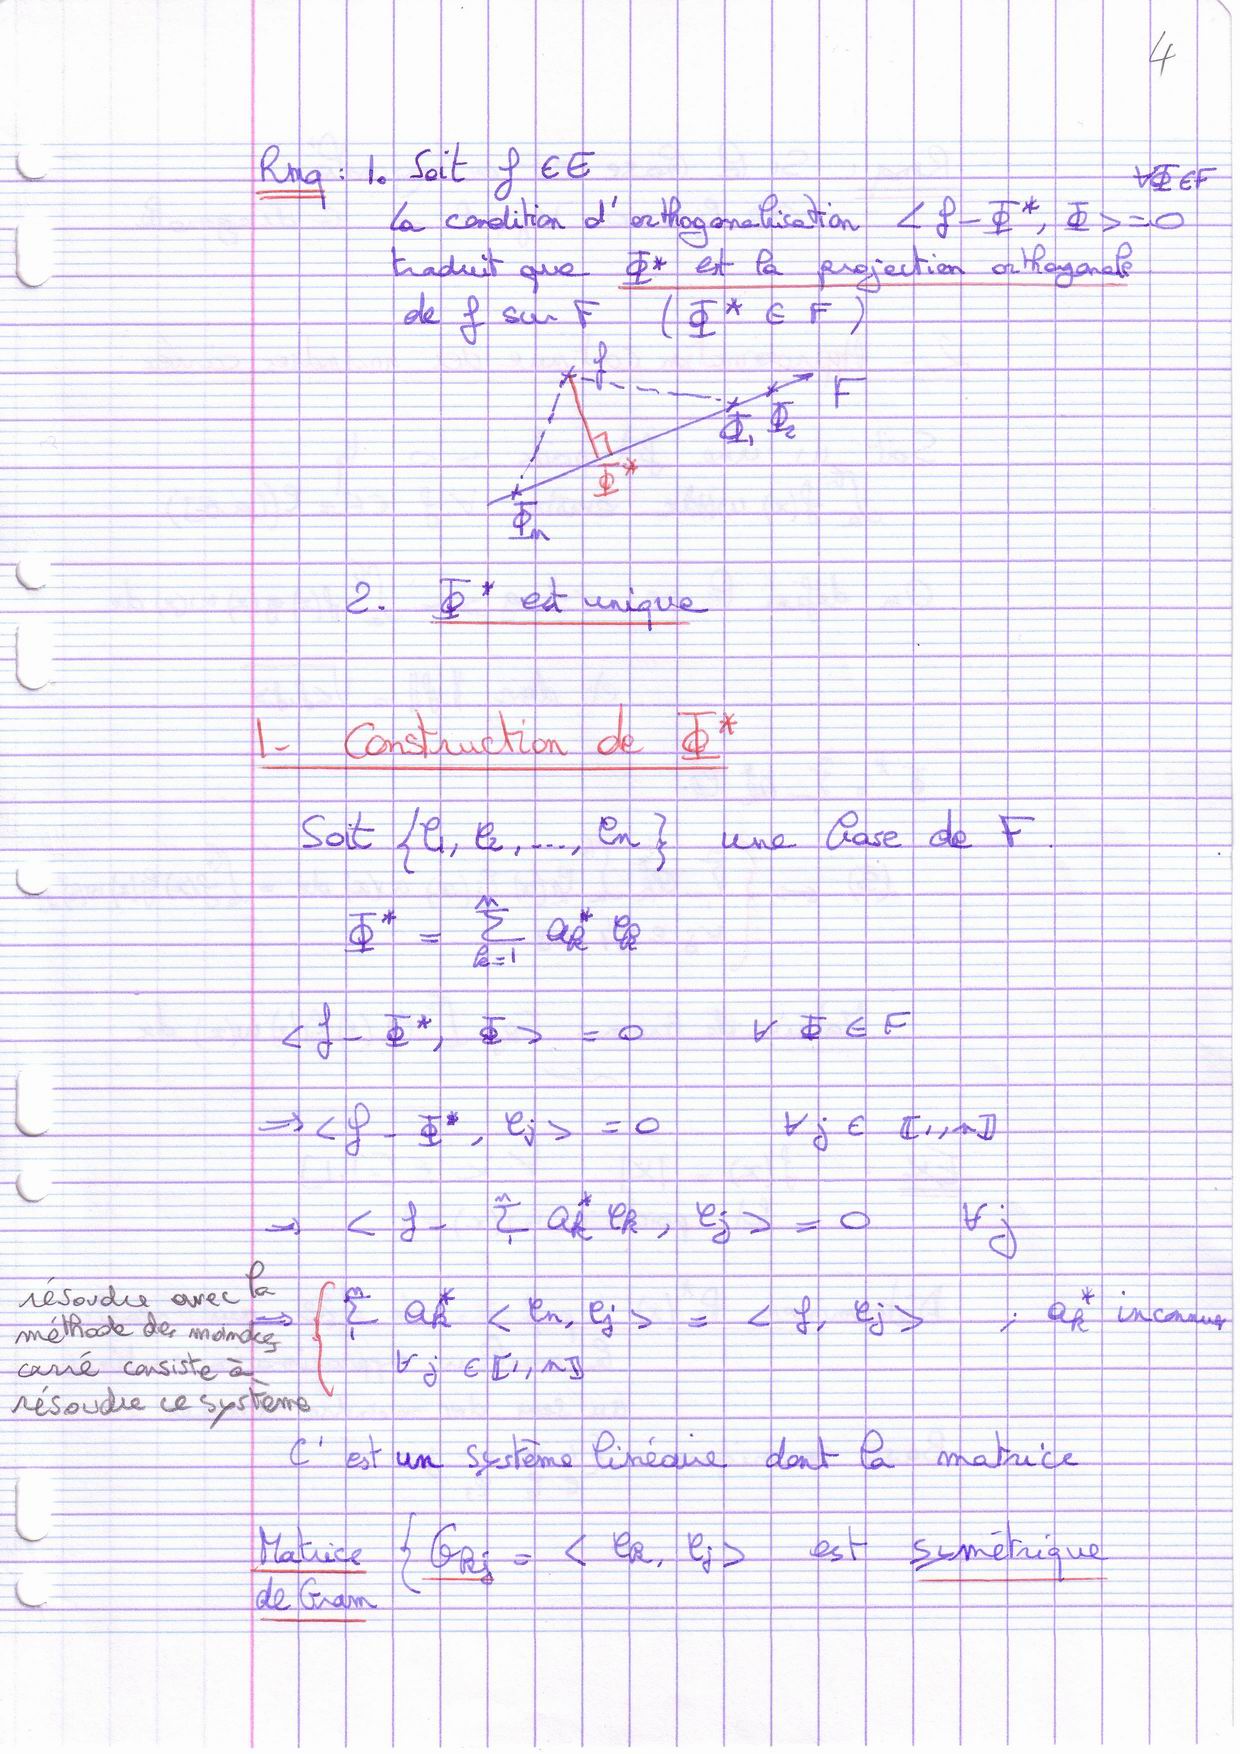 4
Rmq : 1. Soit f ∈ E
la condition d'orthogonalisation < f - Φ*, Φ > = 0 ∀Φ∈F
traduit que Φ* est la projection orthogonale
de f sur F (Φ* ∈ F)
f
F
Φ₁ Φ₂
Φ*
Φn
2. Φ* est unique
1- Construction de Φ*
Soit {e₁, e₂, ..., en} une base de F.
Φ* = Σ_{k=1}^{n} ak* ek
< f - Φ*, Φ > = 0 ∀ Φ ∈ F
⇒ < f - Φ*, ej > = 0 ∀ j ∈ ⟦1, n⟧
⇒ < f - Σ_{1}^{n} ak* ek, ej > = 0 ∀ j
⇒ { Σ_{1}^{n} ak* < en, ej > = < f, ej > ; ak* inconnus
∀ j ∈ ⟦1, n⟧
résoudre avec la
méthode des moindres
carré consiste à
résoudre ce système
C'est un système linéaire dont la matrice
Matrice { Gkj = < ek, ej > est symétrique
de Gram